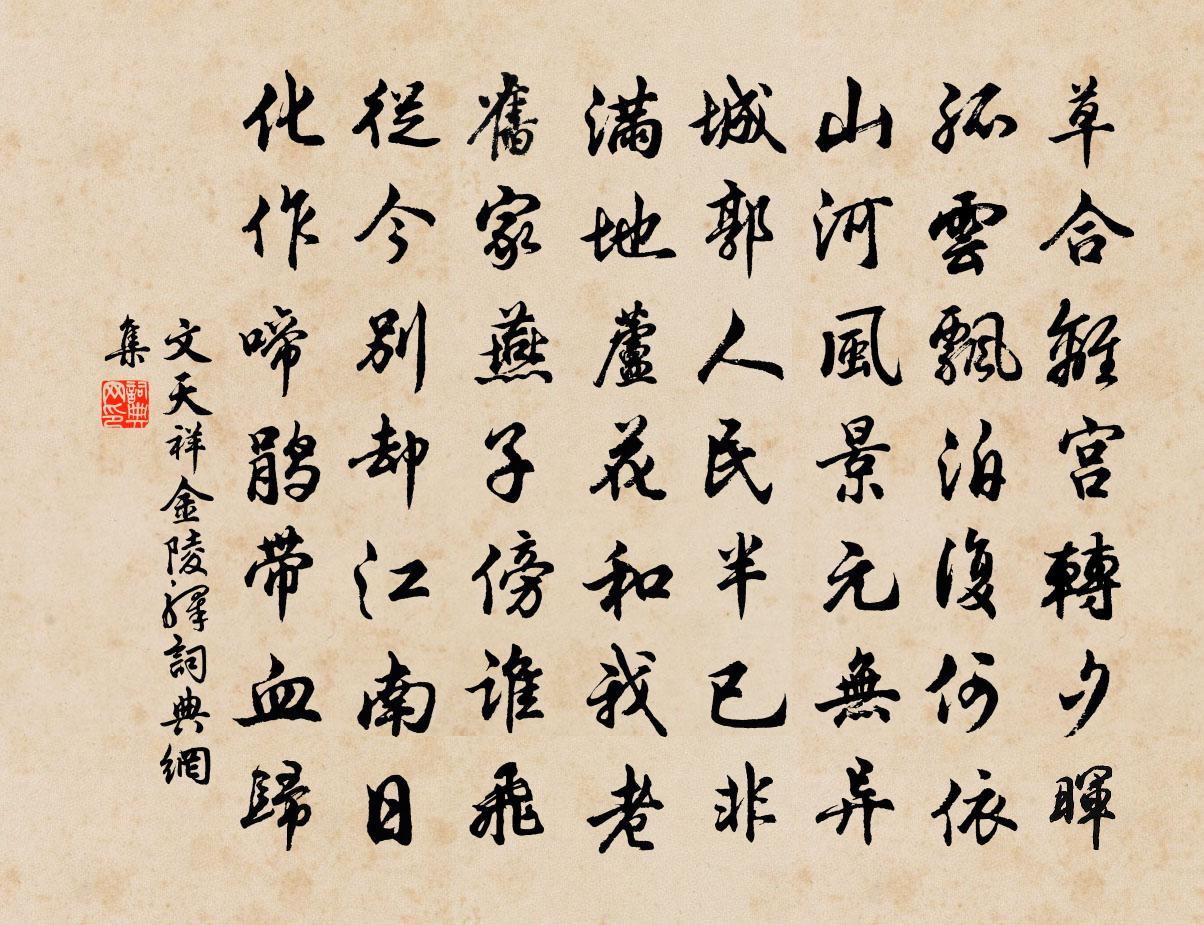 草合離宮轉夕暉
孤雲飄泊復何依
山河風景元無异
城郭人民半已非
滿地蘆花和我老
舊家燕子傍誰飛
從今別却江南日
化作啼鹃帶血歸
文天祥金陵驛詞典網
集
詞典
网印